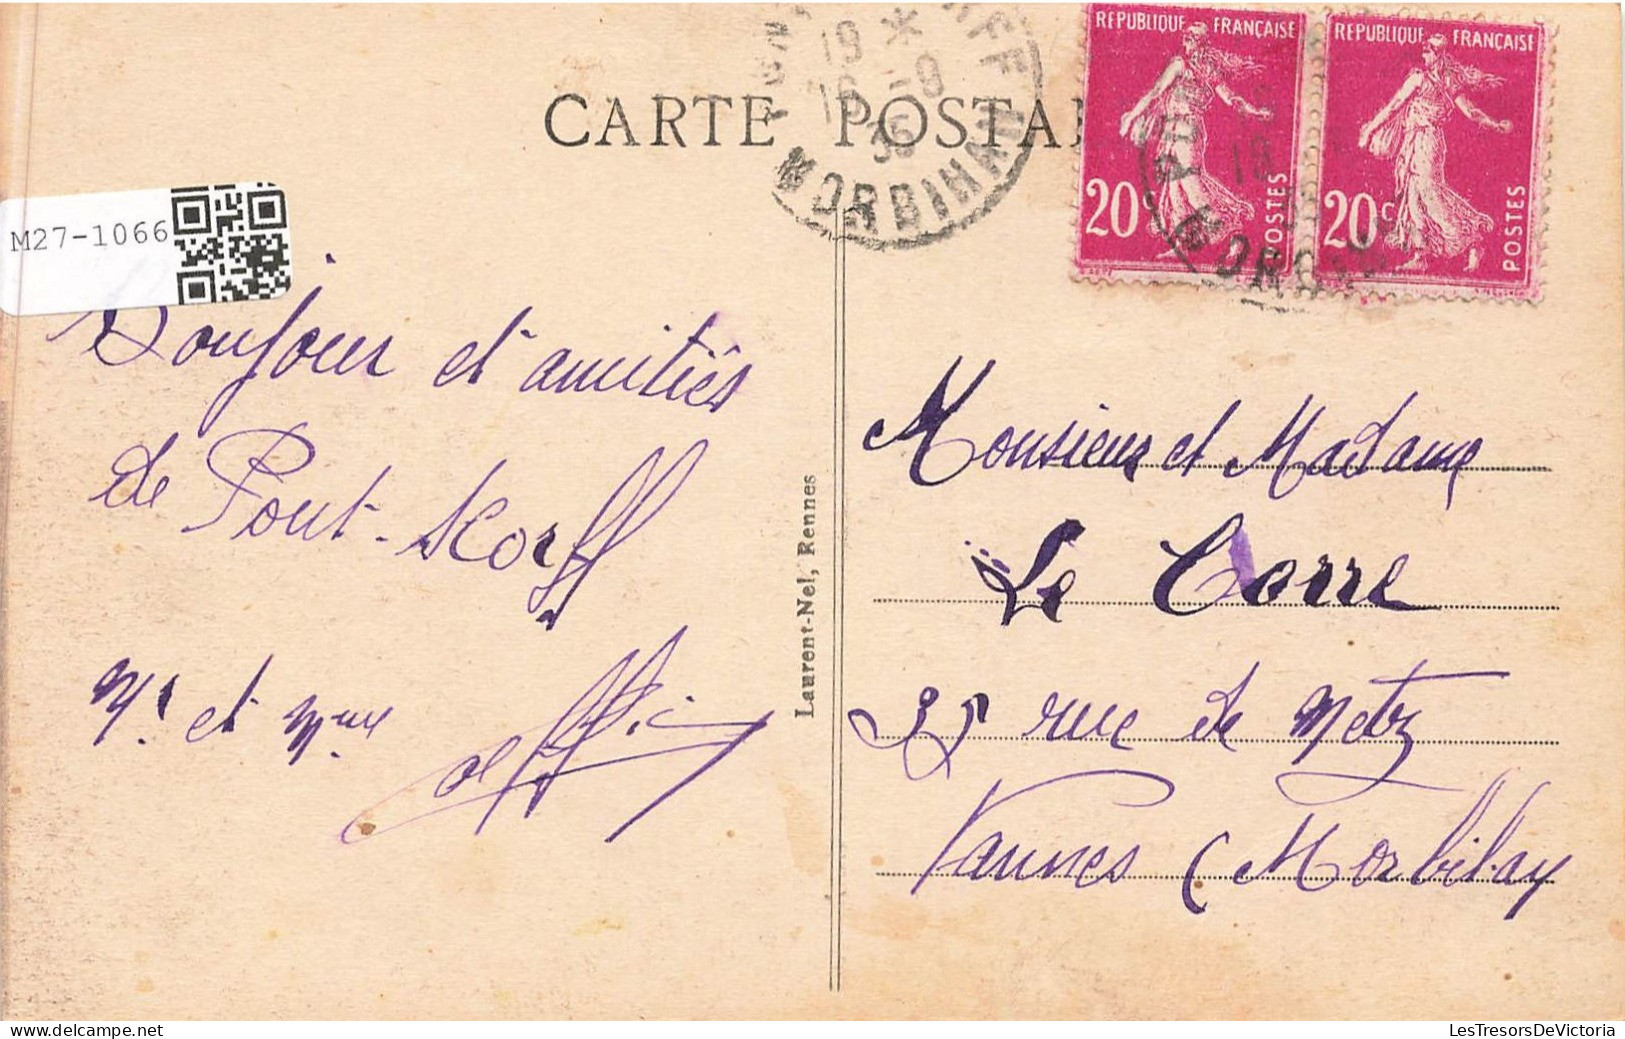 CARTE POSTA
19 *
16 -9
36
MORBIHAN
REPUBLIQUE FRANÇAISE
20c
POSTES
REPUBLIQUE FRANÇAISE
20c
POSTES
M27-1066
Bonjour et amitiés
de Pont-Scorff
Mr et Mme
Laurent-Nel, Rennes
Monsieur et Madame
Le Corre
35 rue de Metz
Vannes (Morbihan
LesTresorsDeVictoria